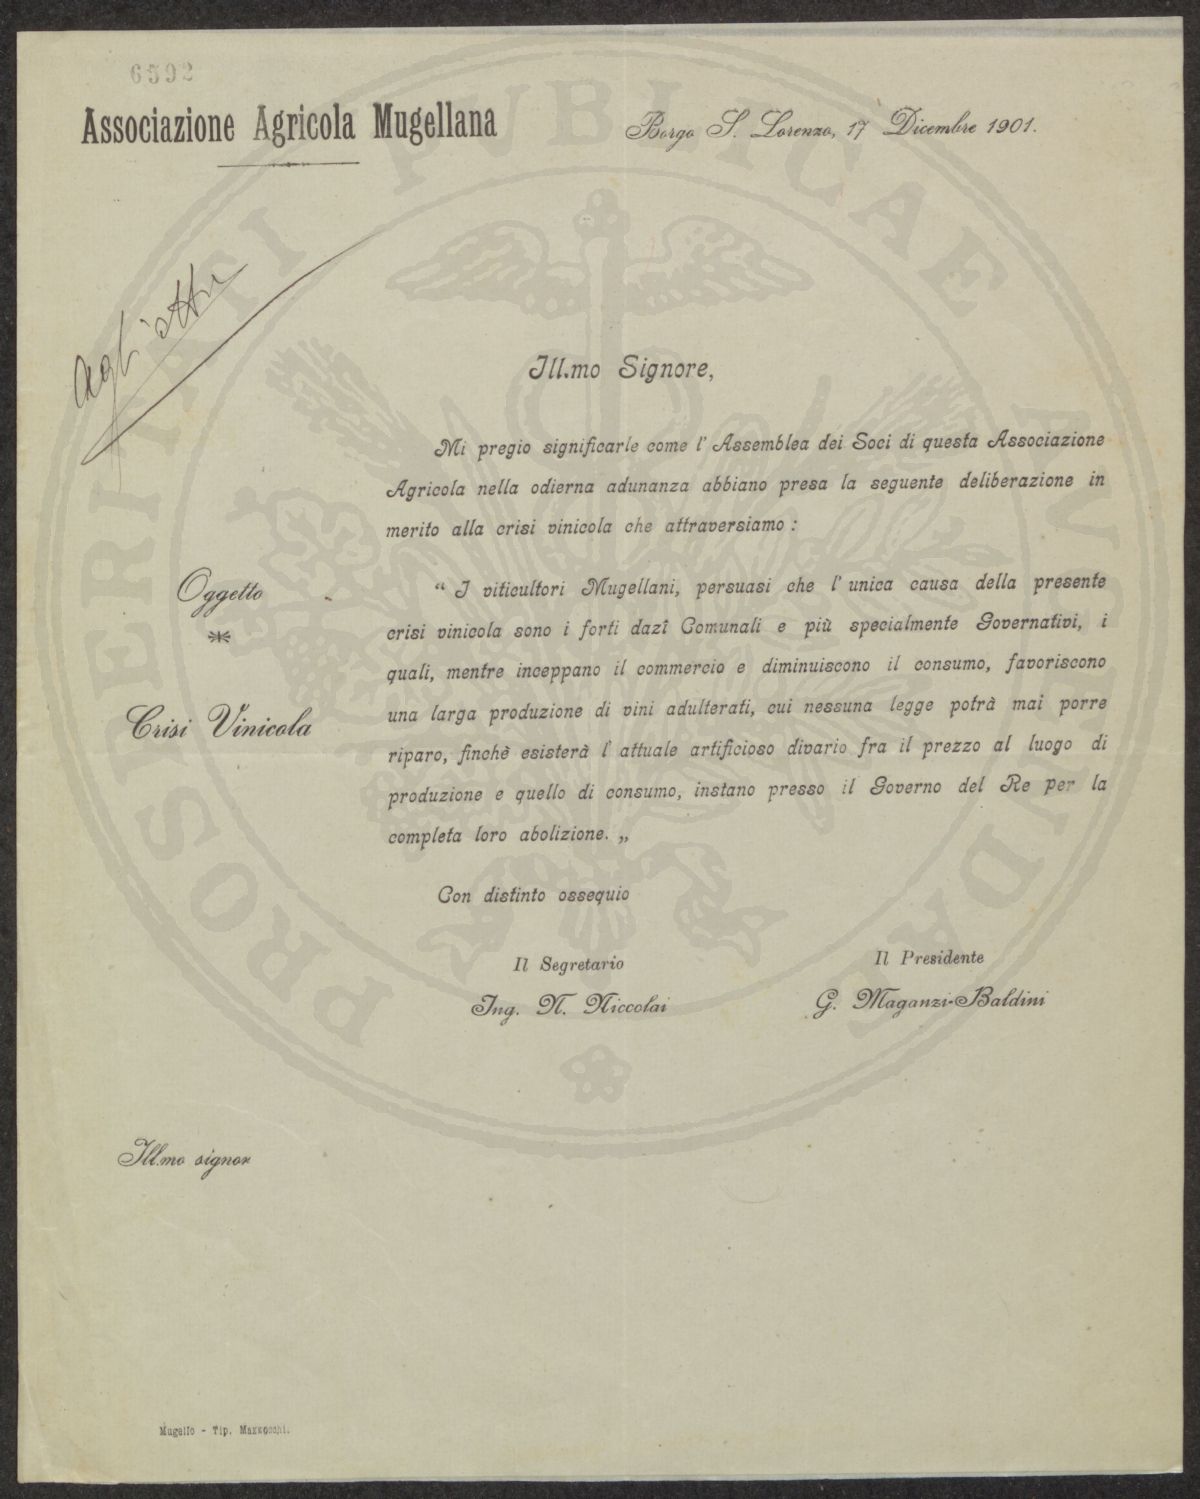 6592
Associazione Agricola Mugellana
Borgo S. Lorenzo, 17 Dicembre 1901.
agli atti
Ill.mo Signore,
Mi pregio significarle come l' Assemblea dei Soci di questa Associazione
Agricola nella odierna adunanza abbiano presa la seguente deliberazione in
merito alla crisi vinicola che attraversiamo :
Oggetto
Crisi Vinicola
“ I viticultori Mugellani, persuasi che l' unica causa della presente
crisi vinicola sono i forti dazî Comunali e più specialmente Governativi, i
quali, mentre inceppano il commercio e diminuiscono il consumo, favoriscono
una larga produzione di vini adulterati, cui nessuna legge potrà mai porre
riparo, finchè esisterà l' attuale artificioso divario fra il prezzo al luogo di
produzione e quello di consumo, instano presso il Governo del Re per la
completa loro abolizione. „
Con distinto ossequio
Il Segretario
Ing. N. Niccolai
Il Presidente
G. Maganzi-Baldini
Ill.mo signor
Mugello - Tip. Mazzocchi.
PROSPERITATI PUBLICAE AUGENDAE